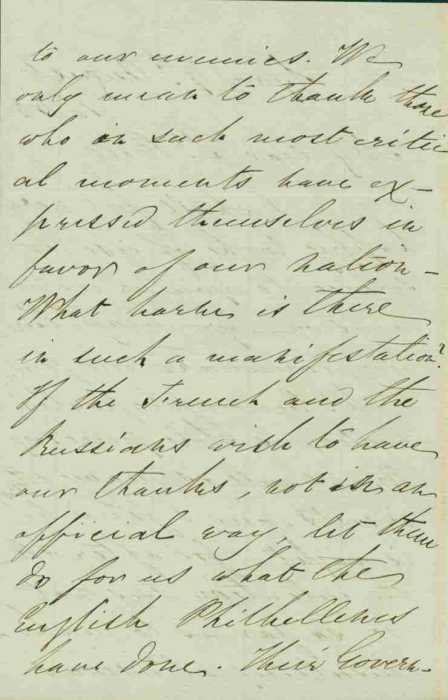 to our enemies. We
only mean to thank those
who in such most critic
al moments have ex-
pressed themselves in
favor of our nation-
What harm is there
in such a manifestation?
If the French and the
Russians wish to have
our thanks, not in an
official way, let them
do for us what the
English Philhellenes
have done. Their Govern-